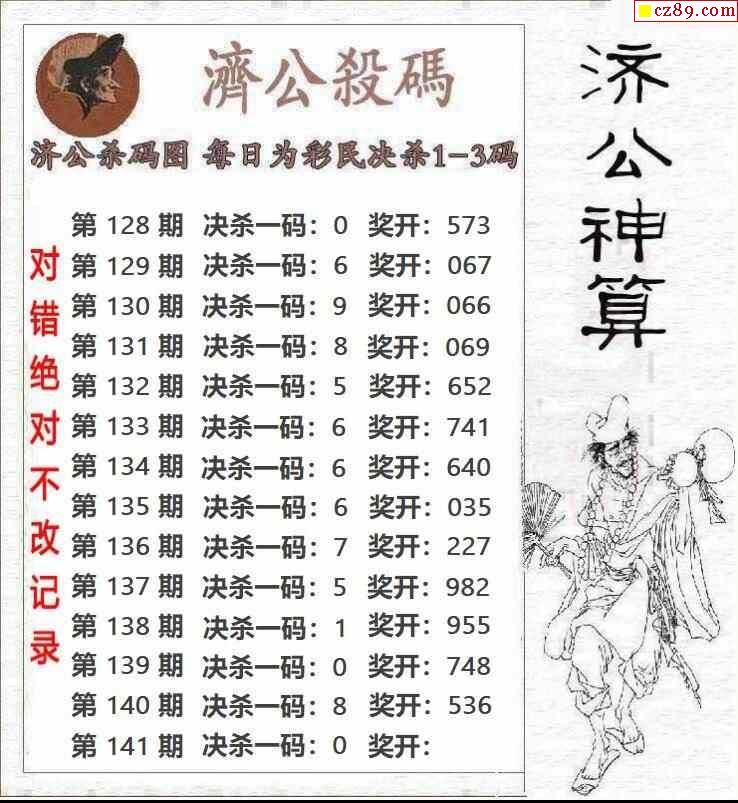 cz89.com
濟公殺碼
济公杀码图 每日为彩民决杀1-3码
第 128 期 决杀一码：0 奖开：573
第 129 期 决杀一码：6 奖开：067
第 130 期 决杀一码：9 奖开：066
第 131 期 决杀一码：8 奖开：069
第 132 期 决杀一码：5 奖开：652
第 133 期 决杀一码：6 奖开：741
第 134 期 决杀一码：6 奖开：640
第 135 期 决杀一码：6 奖开：035
第 136 期 决杀一码：7 奖开：227
第 137 期 决杀一码：5 奖开：982
第 138 期 决杀一码：1 奖开：955
第 139 期 决杀一码：0 奖开：748
第 140 期 决杀一码：8 奖开：536
第 141 期 决杀一码：0 奖开：
对错绝对不改记录
济公神算